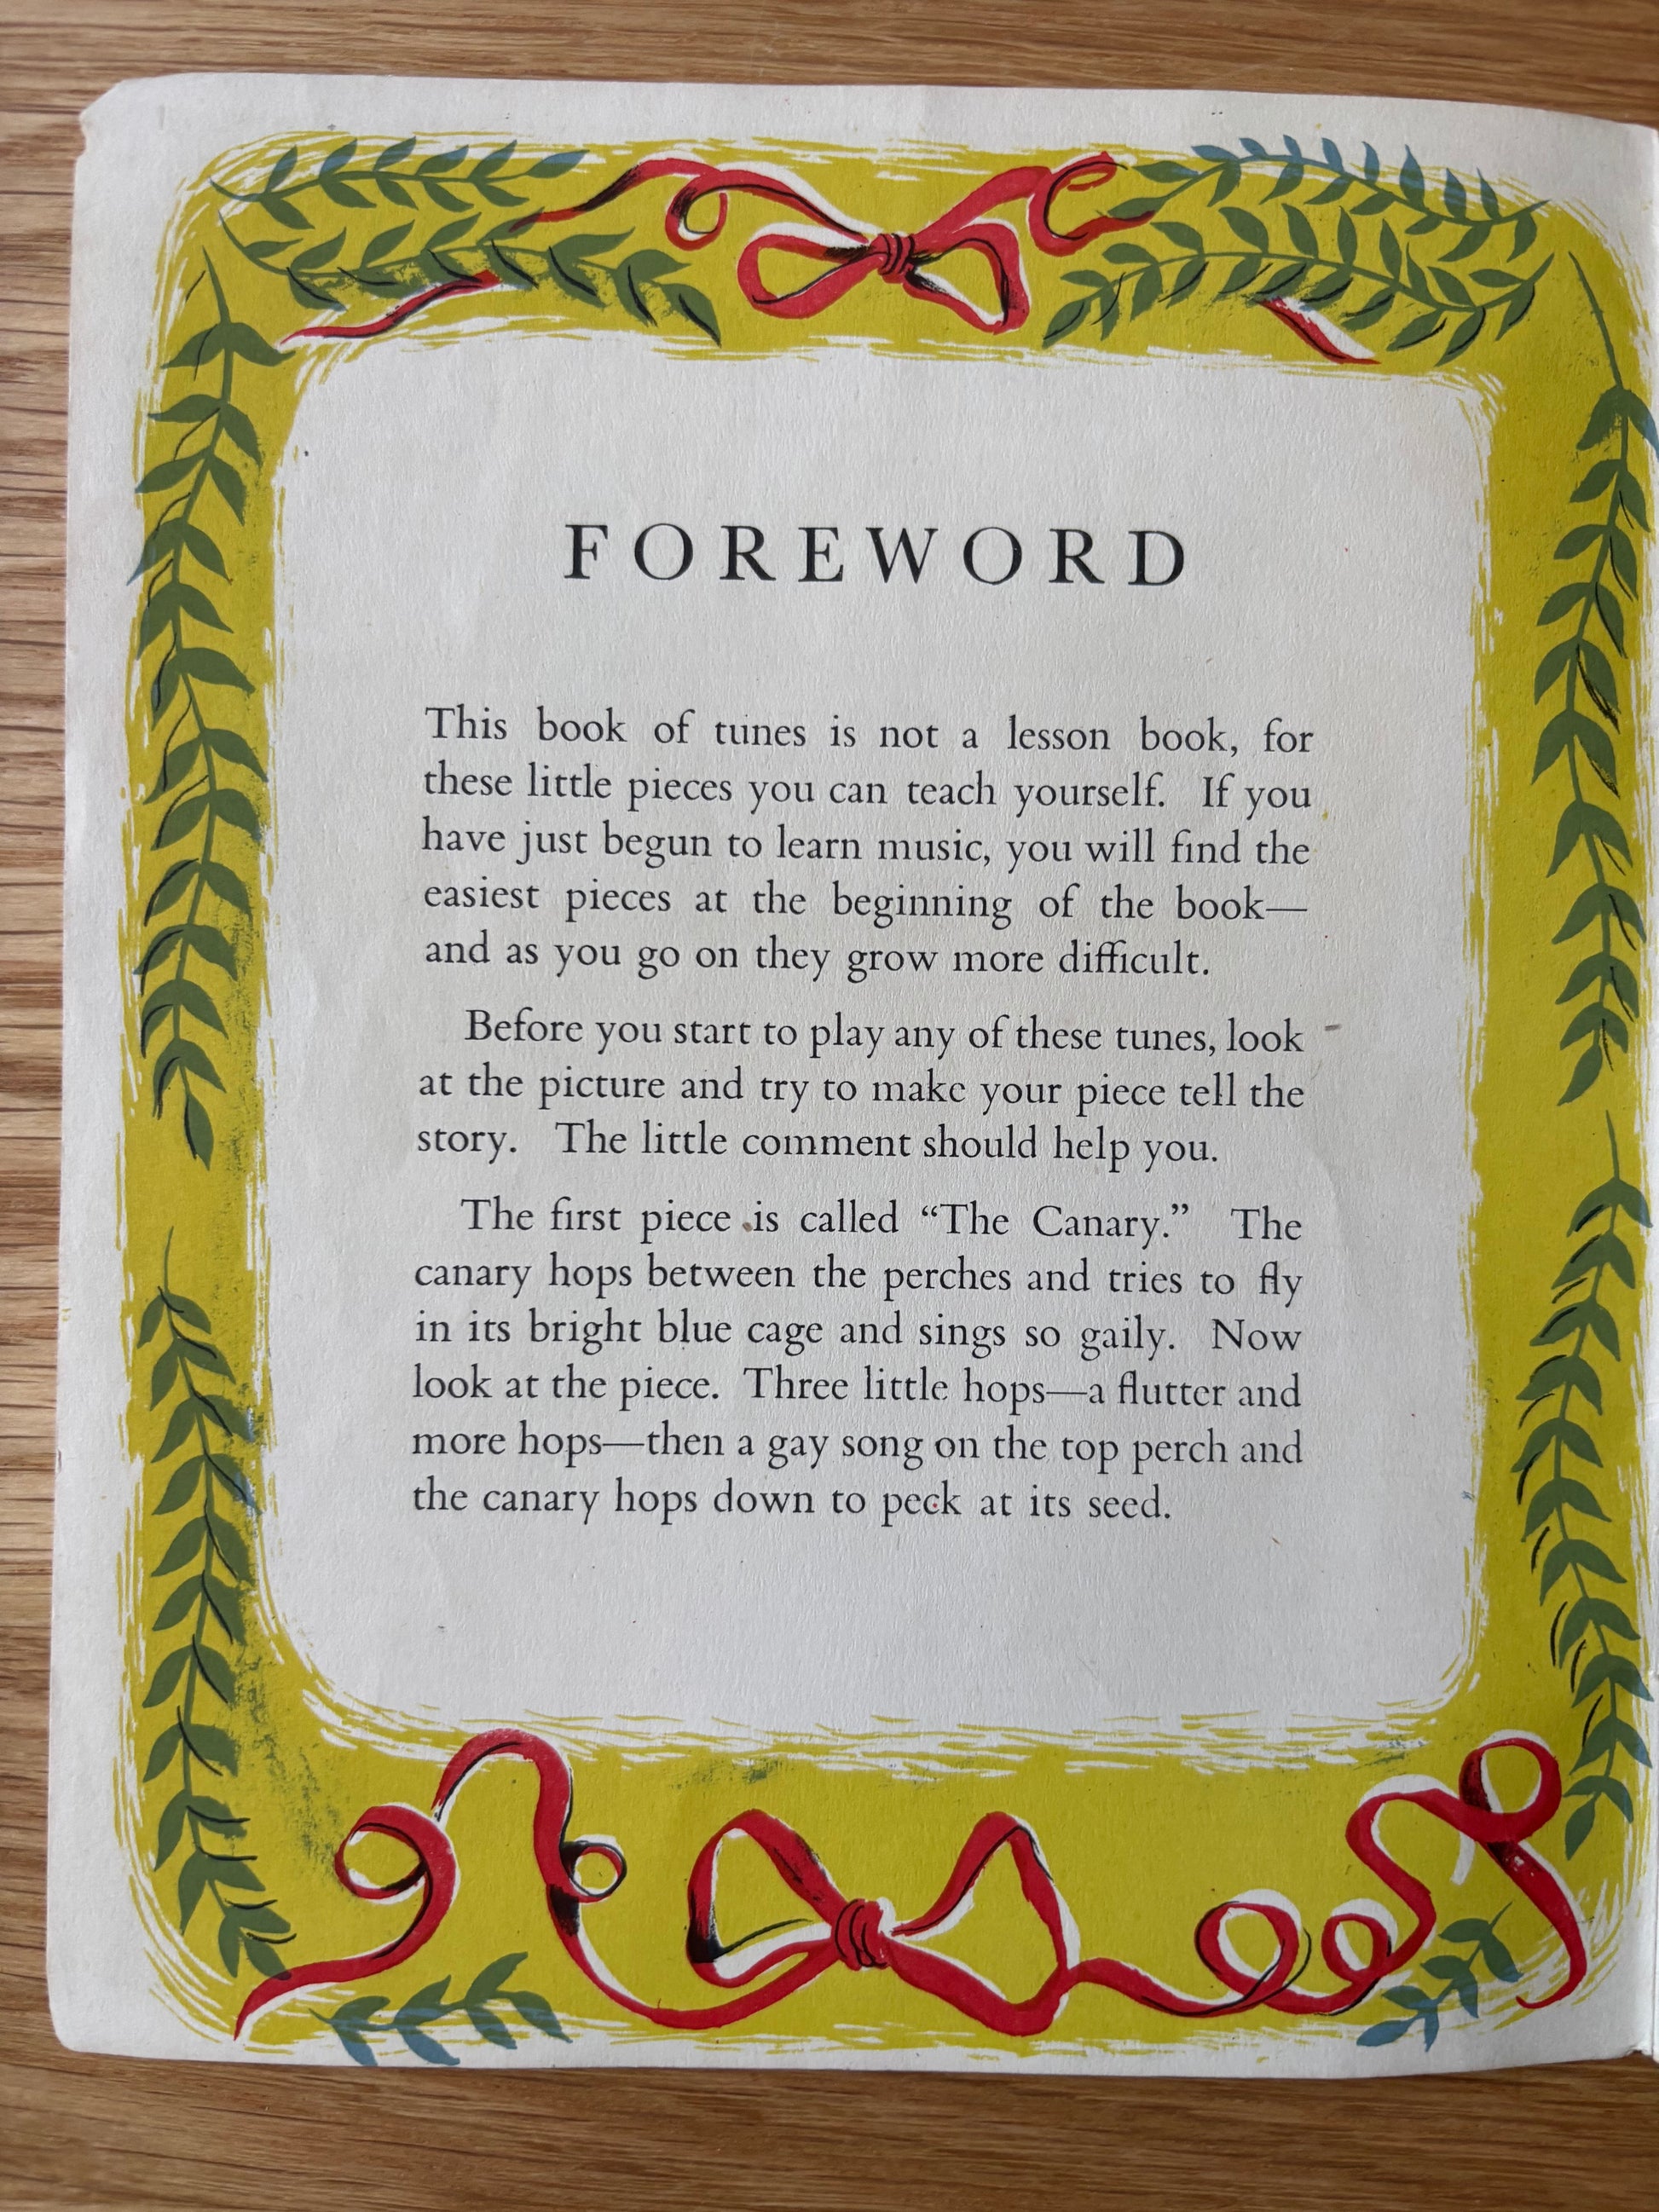 FOREWORD
This book of tunes is not a lesson book, for
these little pieces you can teach yourself. If you
have just begun to learn music, you will find the
easiest pieces at the beginning of the book—
and as you go on they grow more difficult.
Before you start to play any of these tunes, look
at the picture and try to make your piece tell the
story. The little comment should help you.
The first piece is called “The Canary.” The
canary hops between the perches and tries to fly
in its bright blue cage and sings so gaily. Now
look at the piece. Three little hops—a flutter and
more hops—then a gay song on the top perch and
the canary hops down to peck at its seed.